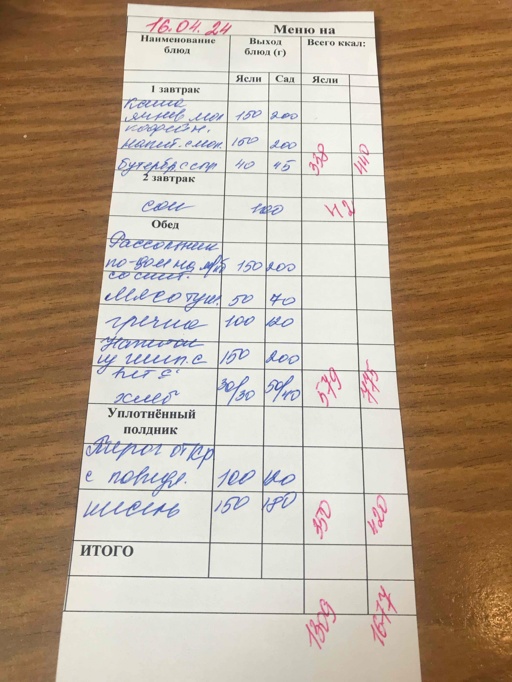 16.04.24 Меню на
Наименование блюд Выход блюд (г) Всего ккал:
Ясли Сад Ясли
1 завтрак
Каша
ячнев. мол 150 200
кофейн.
напит. с мол. 150 200
бутерб. с сыр 40 45 338 440
2 завтрак
сок 100 42
Обед
Рассольник
по-дом на м/б 150 200
со смет.
мясо туш. 50 70
гречка 100 120
Напиток
из шип. с 150 200
вит С
хлеб 30/30 50/40 579 775
Уплотнённый
полдник
Пирог откр
с повидл. 100 120
кисель 150 180 350 420
ИТОГО
1309 1677